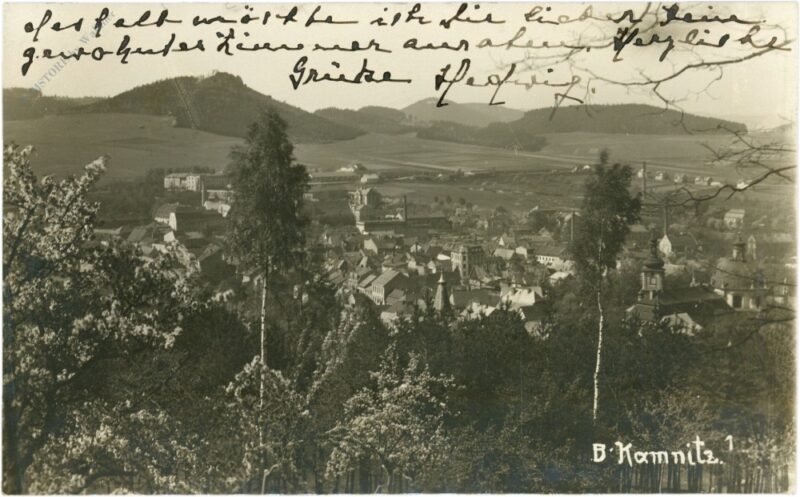 deshalb möchte ich Sie lieber Dein
gewohntes Zimmer Herzliche
Grüße Hedwig.
B. Kamnitz. 1